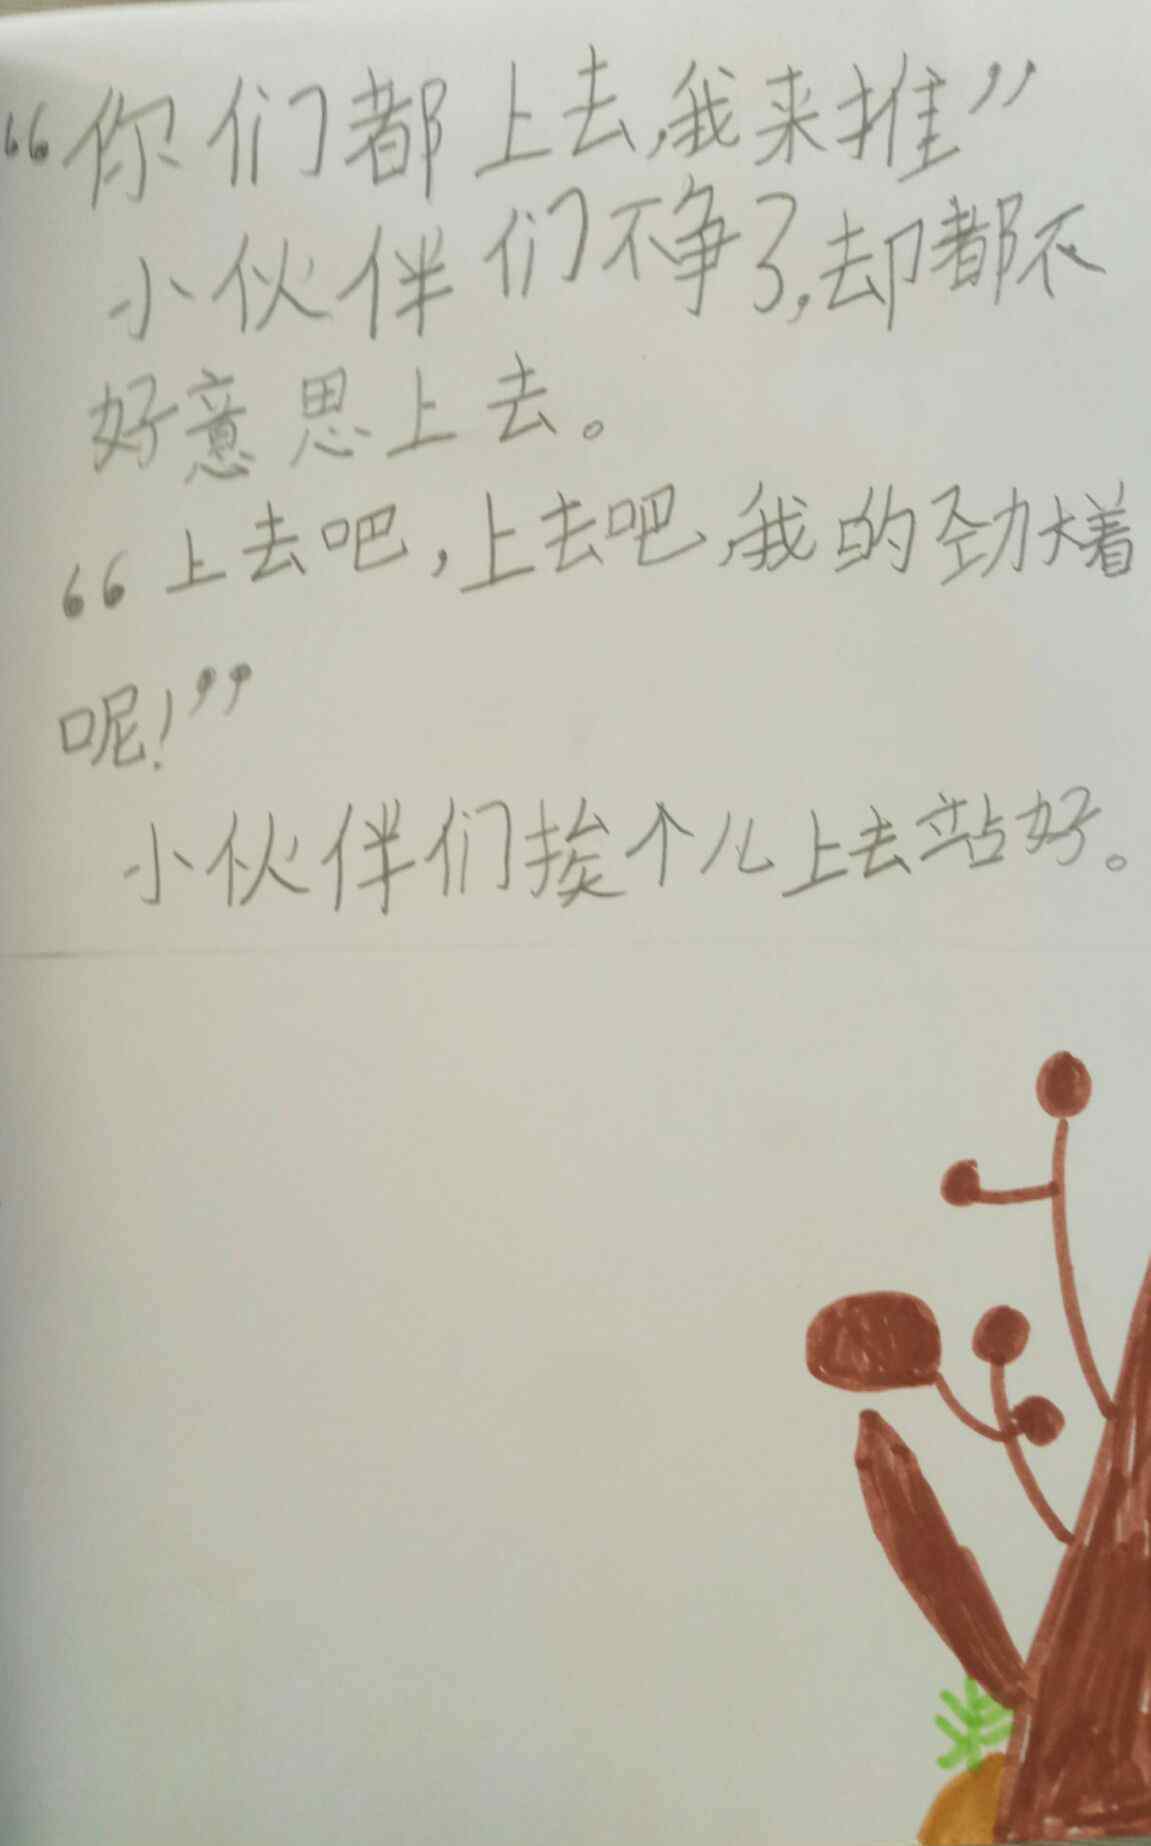 “你们都上去,我来推”
小伙伴们不争了,却都不
好意思上去。
“上去吧,上去吧,我的劲大着
呢!”
小伙伴们挨个儿上去站好。